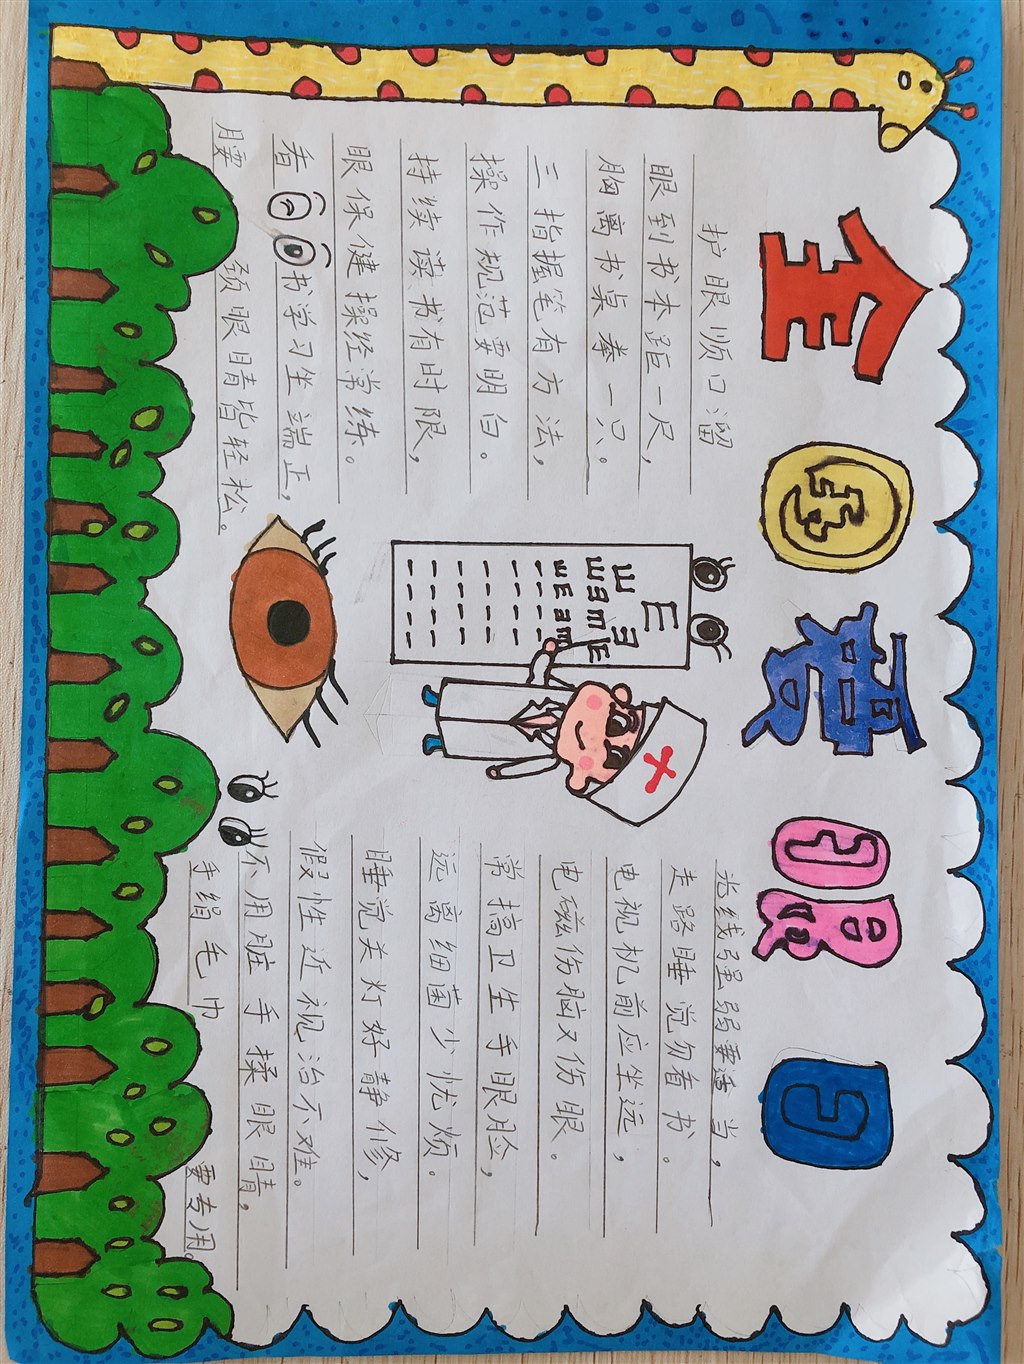 全国爱眼日
护眼顺口溜
眼到书本距一尺，
胸离书桌拳一只。
三指握笔有方法，
操作规范要明白。
持续读书有时限，
眼保健操经常练。
看书学习坐端正，
腰颈眼睛皆轻松。
光线强弱要适当，
走路睡觉勿看书。
电视机前应坐远，
电磁伤脑又伤眼。
常搞卫生手眼脸，
远离细菌少忧烦。
睡觉关灯好静修，
假性近视治不难。
不用脏手揉眼睛，
手绢毛巾要专用。